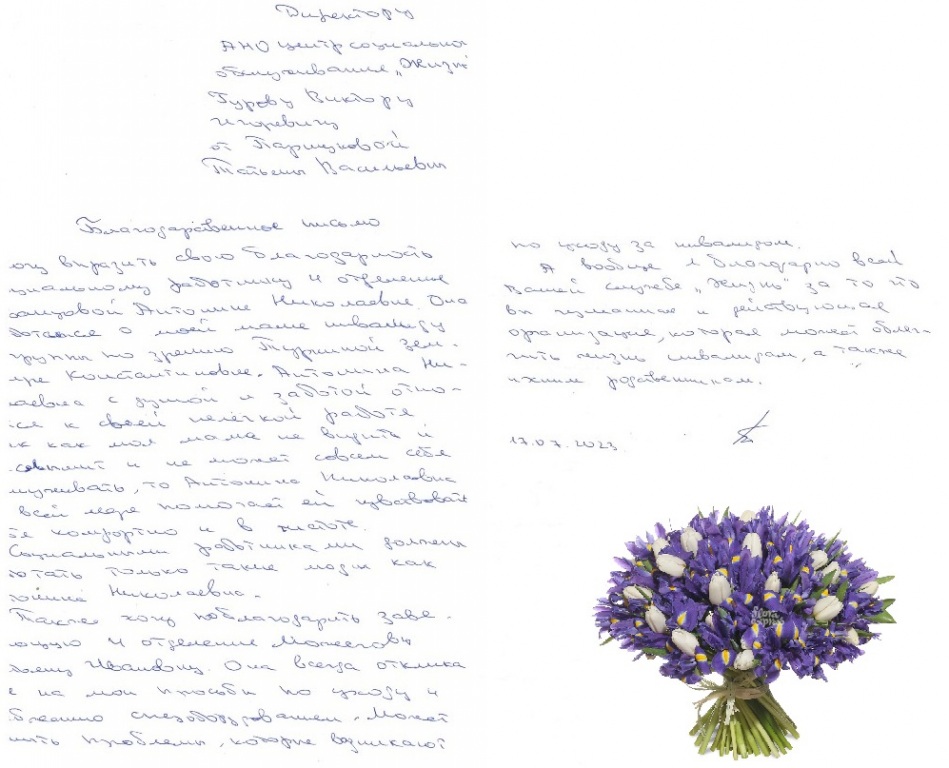 Директору
АНО центр социальног
обслуживания „Жизнь"
Гурову Виктору
Игоревичу
от Парицковой
Татьяны Васильевны
Благодарственное письмо
огу выразить свою благодарность
циальному работнику 4 отделения
Антонине Николаевне. Она
о моей маме инвалиду
группы по зрению Зем-
Константиновне. Антонина Ни-
лаевна с душой и заботой отно-
ся к своей нелёгкой работе
ак как моя мама не видит и
слышит и не может совсем себя
служивать, то Антонина Николаевна
всей мере помогает ей чувствовать
бя комфортно и в чистоте.
Социальными работниками должны
ботать только такие люди как
Николаевна.
Также хочу поблагодарить заве-
ующую 4 отделения
Ивановну. Она всегда отклика
е на мои просьбы по уходу и
спецоборудованием. Может
шить проблемы, которые возникают
по уходу за инвалидом.
А вообще я благодарна всей
Вашей службе „Жизнь" за то что
вы гуманная и действующая
организация, которая может облег-
чить жизнь инвалидам, а также
ихним родственникам.
17.07.2023